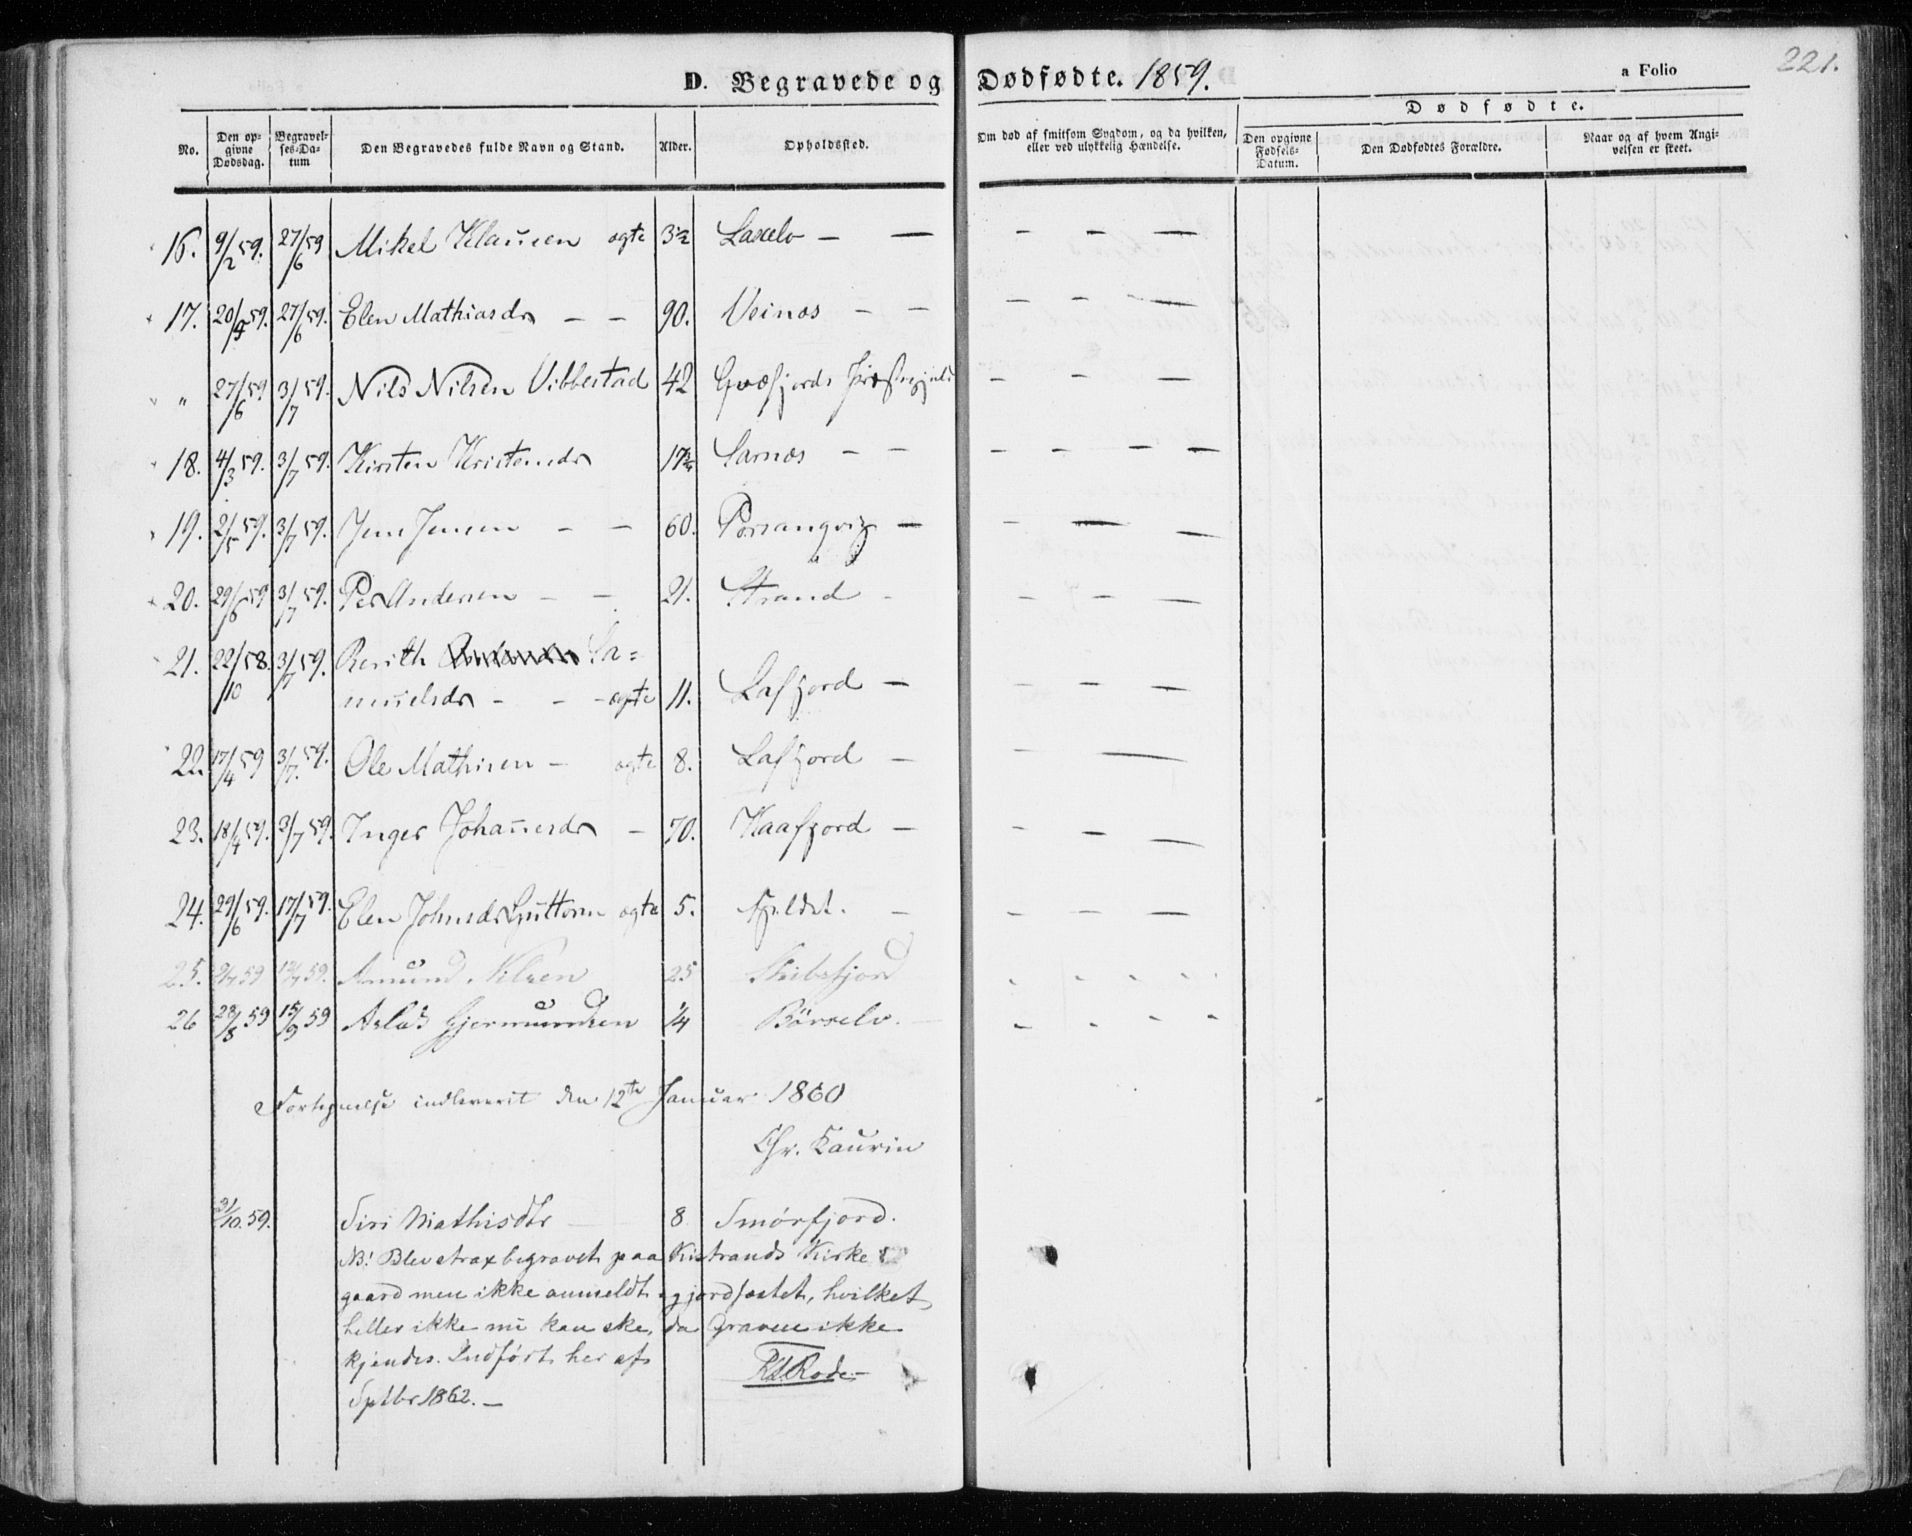 221.
D. Begravede og Dødfødte. 1859.
a Folio
No. | Den opgivne Dødsdag. | Begravelses-Datum | Den Begravedes fulde Navn og Stand. | Alder. | Opholdssted. | Om død af smitsom Sygdom, og da hvilken, eller ved ulykkelig Hændelse. | Dødfødte. | Den opgivne Fødsels-Datum. | Den Dødfødtes Forældre. | Naar og af hvem Angivelsen er skeet.
16. 9/2 59. 27/6 59 Mikel Klausen ægte 3½ Laxelv — — - - —
17. 20/5 59. 27/6 59. Elen Mathiasdr — — 90. Veinæs — — — - —
" 27/6 59 3/7 59. Nils Nilsen Vibbestad 42 Qvæfjords Præstegjeld - - —
18. 4/3 59. 3/7 59. Kirsten Kristensdr 17½ Sarnæs — — — — — —
19. 2/5 59. 3/7 59. Jens Jensen — — 60. Porsangvig — — — —
20. 29/6 59 3/7 59. Per Andersen — — 21. Strand - — — —
21. 22/10 58. 3/7 59. Berith Sa=
muelsdr - - - ægte 11. Lafjord — — — —
22. 17/4 59 3/7 59. Ole Mathisen — ægte 8. Lafjord — — —
23. 18/4 59. 3/7 59. Inger Johannesdr — 70. Kaafjord — - — —
24. 29/6 59. 17/7 59. Elen Johnsdr Guttorm ægte 5. Fjeldet. — - — —
25. 59 59. Amund Nilsen 25 Skibsfjord
26 28/8 59 15/9 59 Aslak Gjermundsen ¼ Børselv.
Fortegnelse indleverit den 12te Januar 1860
Chr. Kaurin
31/10. 59. Siri Mathisdtr — 8 Smørfjord.
NB! Blev strax begravet paa Kistrands Kirke
gaard men ikke anmeldt og jordfæstet, hvilket
heller ikke nu kan ske, da Graven ikke
kjendes. Indført her af
Rd. Rode
Sptbr 1862. —